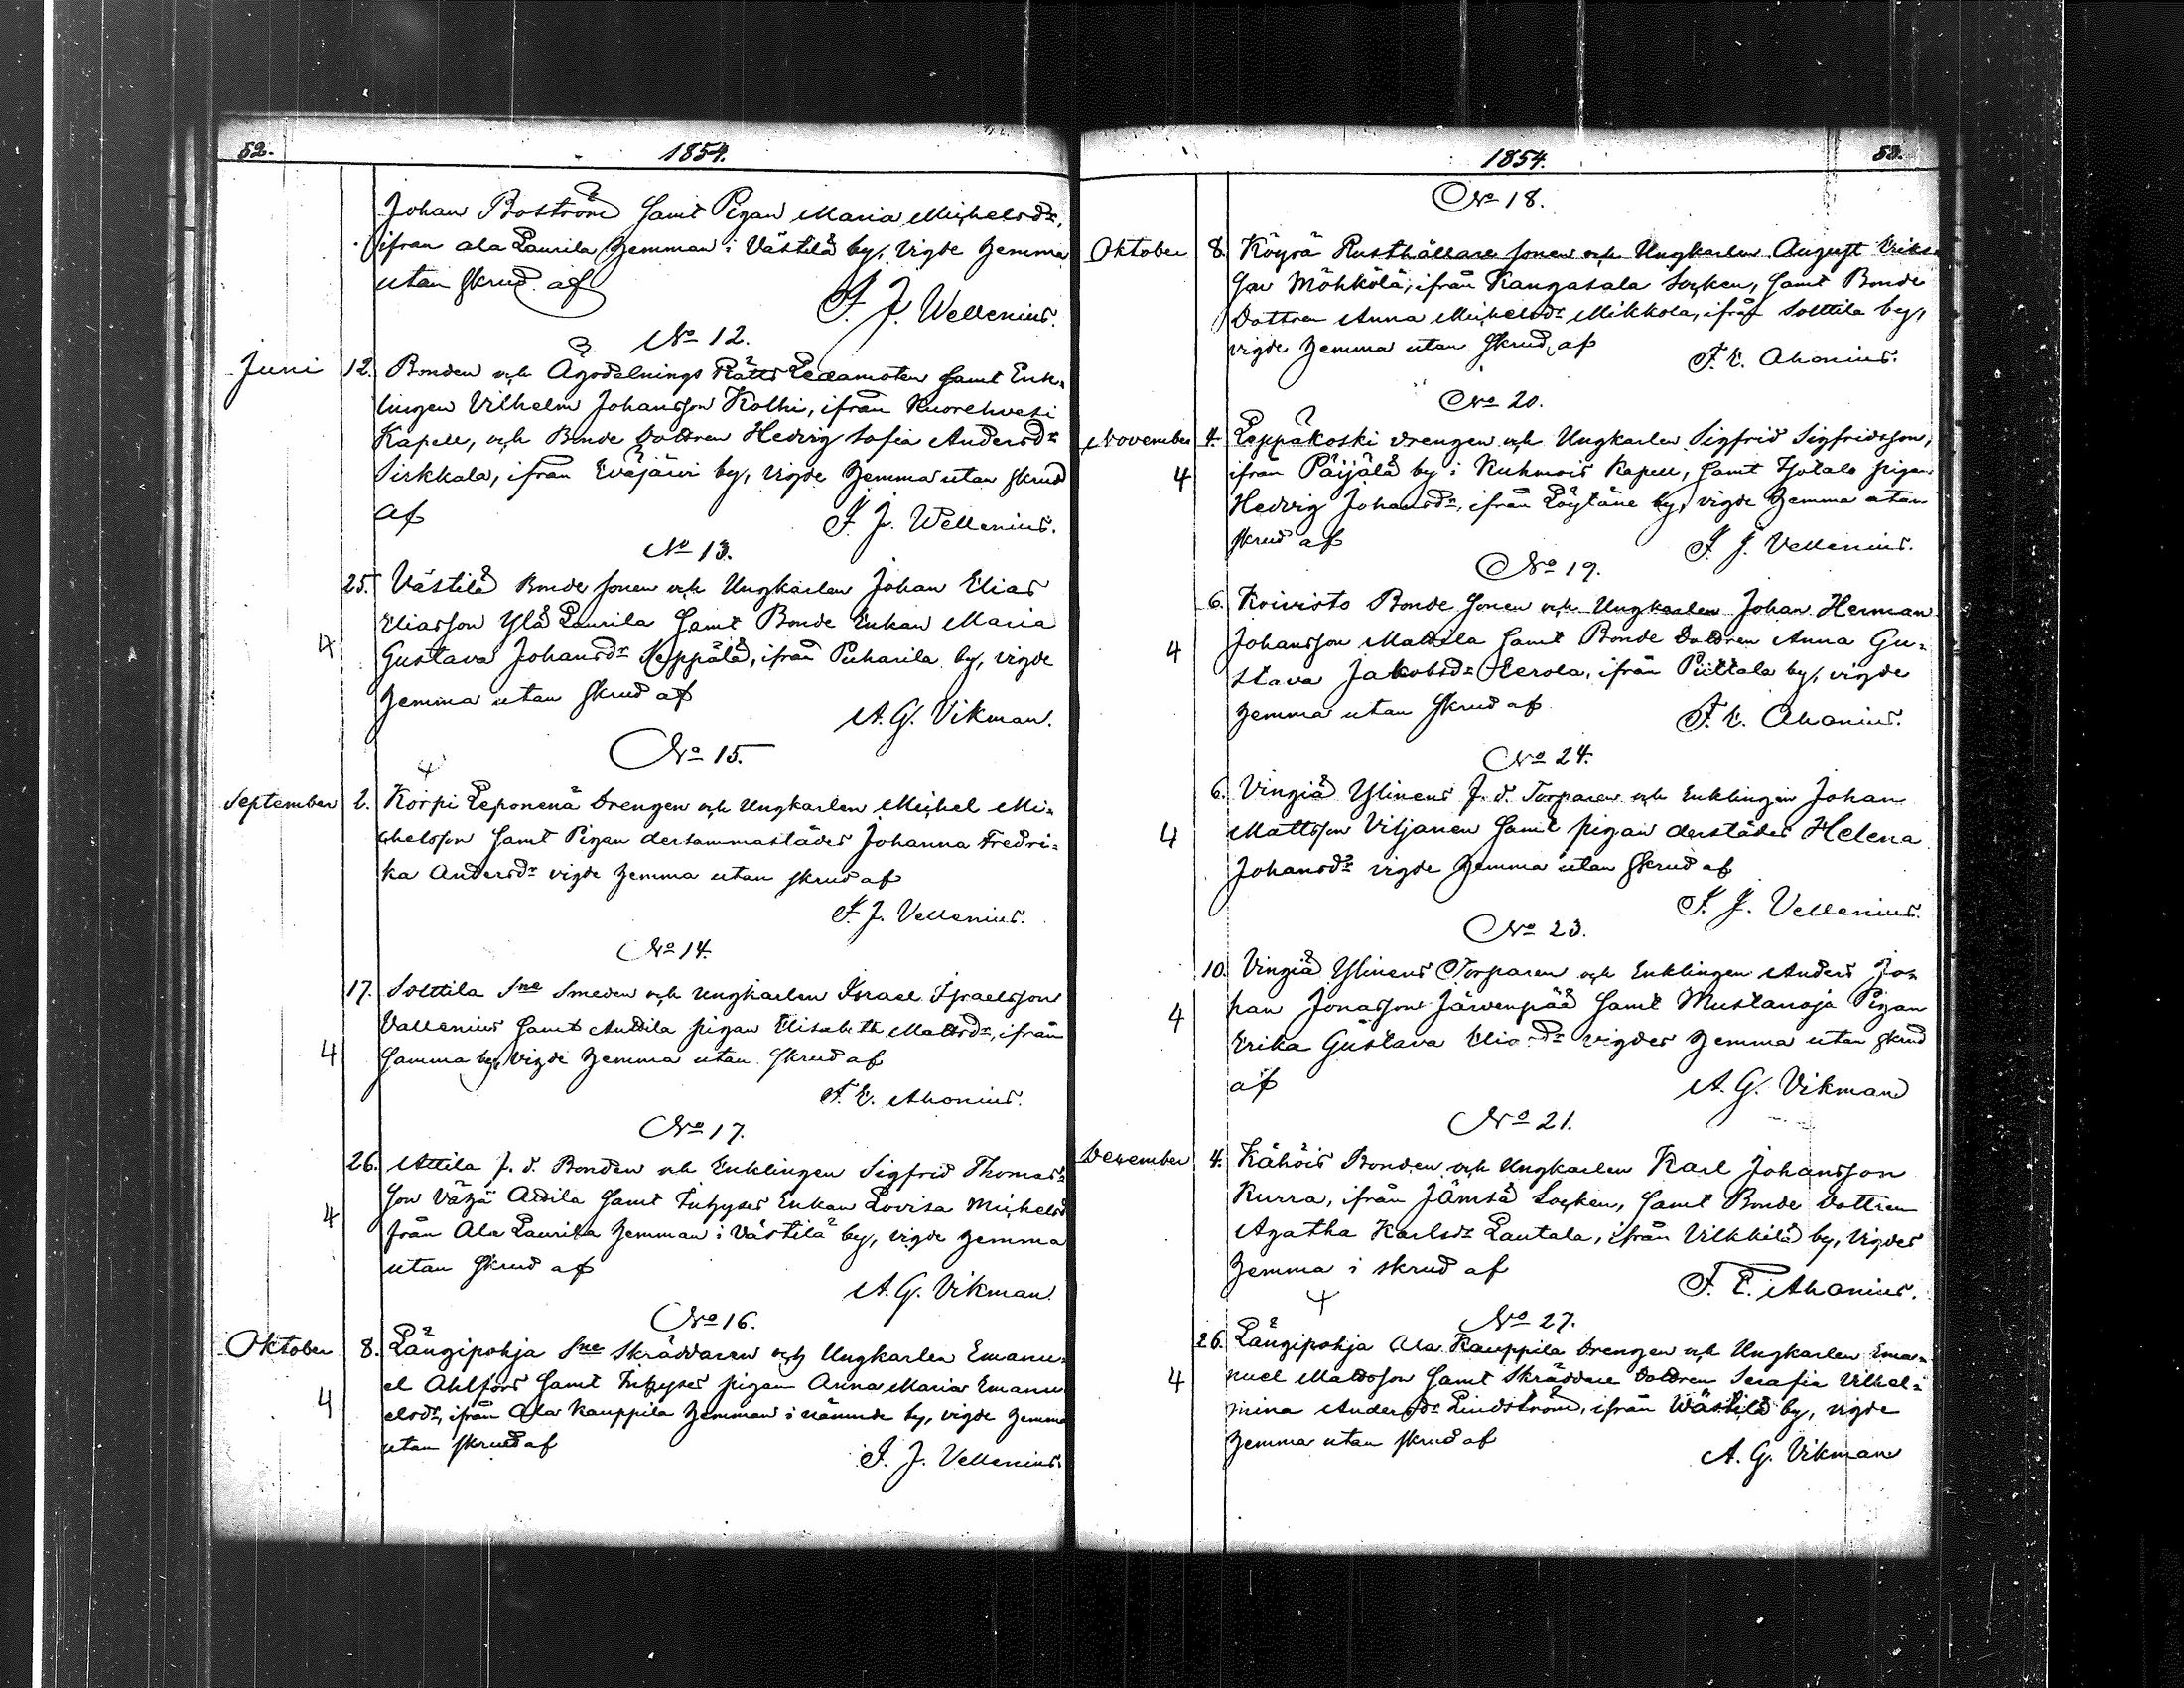 52.
1854.
Johan Boström samt Pigan Maria Michelsdr,
ifrån Ala Laurila hemman i Västilä by, vigde hemma
utan skrud af
F. J. Wellenius.
No 12.
Juni 12. Bonden och Ägodelnings Rätts Ledamoten samt Enk-
lingen Vilhelm Johansson Kolhi, ifrån Kuorehvesi
Kapell, och Bonde Dottren Hedvig Sofia Andersdr
Sirkkala, ifrån Eväjärvi by, vigde hemma utan skrud
af
F. J. Wellenius.
No 13.
25. Västilä Bonde sonen och Ungkarlen Johan Elias
Eliasson Ylä Laurila samt Bonde Enkan Maria
4 Gustava Johansdr Seppälä, ifrån Puharila by, vigde
hemma utan skrud af
A. G. Vikman.
No 15.
4
September 2. Korpi Leponenä Drengen och Ungkarlen Michel Mi-
chelsson samt Pigan dersammastädes Johanna Fredri-
ka Andersdr vigde hemma utan skrud af
F. J. Vellenius.
No 14.
17. Solttila Sne Smeden och Ungkarlen Israel Israelsson
Vallenius samt Anttila pigan Elisabeth Mattsdr, ifrån
4 samma by, vigde hemma utan skrud af
F. E. Ahonius.
No 17.
26. Attila f. d. Bonden och Enklingen Sigfrid Thomas-
son Vähä Attila samt Inhyses Enkan Lovisa Michelsd
4 från Ala Laurila hemman i Västilä by, vigde hemma
utan skrud af
A. G. Vikman.
No 16.
Oktober 8. Längipohja Sne Skräddaren och Ungkarlen Emanu-
el Ahlfors samt Inhyses pigan Anna Maria Emanu
4 elsdr, ifrån Ala Kauppila hemman i nämnde by, vigde hemma
utan skrud af
F. J. Vellenius.
1854.
53.
No 18.
Oktober 8. Köyrä Rusthållare sonen och Ungkarlen August Eriks-
son Möhkölä, ifrån Kangasala Socken, samt Bonde
Dottren Anna Michelsdr Mikkola, ifrån Solttila by,
vigde hemma utan skrud, af
F. E. Ahonius.
No 20.
November 4. Leppäkoski drengen och Ungkarlen Sigfrid Sigfridsson,
4 ifrån Päijälä by i Kuhmois Kapell, samt Isotalo pigan
Hedvig Johansdr, ifrån Löytäne by, vigde hemma utan
skrud af
F. J. Vellenius.
No 19.
6. Koivisto Bonde sonen och Ungkarlen Johan Herman
4 Johansson Mattila samt Bonde Dottren Anna Gu-
stava Jakobsdr Eerola, ifrån Pittala by, vigde
hemma utan skrud af
F. E. Ahonius.
No 24.
6. Vingiä Ylinens f. d. Torparen och Enklingen Johan
4 Mattsson Viljanen samt pigan derstädes Helena
Johansdr vigde hemma utan skrud af
F. J. Vellenius.
No 23.
10. Vingiä Ylinens Torparen och Enklingen Anders Jo-
4 han Jonasson Järvenpää samt Mustanoja Pigan
Erika Gustava Eliædr vigdes hemma utan skrud
af
A. G. Vikman
No 21.
December 4. Kähöis Bonden och Ungkarlen Karl Johansson
Kurra, ifrån Jämsä Socken, samt Bonde Dottren
Agatha Karlsdr Lautala, ifrån Vilkkilä by, vigdes
hemma i skrud af
F. E. Ahonius.
4
No 27.
26. Längipohja Ala Kauppila Drengen och Ungkarlen Ema-
4 nuel Mattsson samt Skräddare Dottren Serafia Vilhel-
mina Andersdr Lindström, ifrån Wästilä by, vigde
hemma utan skrud af
A. G. Vikman